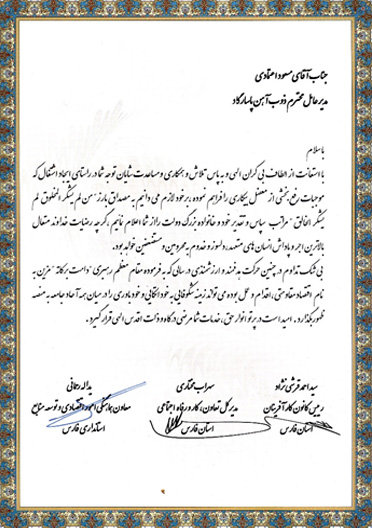 جناب آقای مسعود اعتقادی
مدیرعامل محترم ذوب آهن پاسارگاد
باسلام
با استعانت از الطاف بی کران الهی و به پاس تلاش و همکاری و مساعدت شایان توجه شما در راستای ایجاد اشتغال که
موجبات رفع بخشی از معضل بیکاری را فراهم نموده بر خود لازم می دانیم به مصداق بارز "من لم یشکر المخلوق لم
یشکر الخالق" مراتب سپاس و تقدیر خود و خانواده بزرگ دولت را از شما اعلام نمائیم ، اگرچه رضایت خداوند متعال
بالاترین اجر و پاداش انسان های متعهد ، دلسوز و خدوم به محرومین و مستضعفین خواهد بود.
بی شک تداوم در چنین حرکت هدفمند و ارزشمندی در سالی که به فرموده مقام معظم رهبری "دامت برکاته" مزین به
نام اقتصاد مقاومتی ، اقدام و عمل بوده می تواند زمینه شکوفایی به خود اتکایی و خودباوری را در میان همه آحاد جامعه به منصه
ظهور بگذارد. امید است در پرتو انوار حق ، خدمات شما مرضی درگاه ذات اقدس الهی قرار گیرد.
سید احمد قرشی نژاد
رییس کانون کارآفرینان
استان فارس
سهراب مختاری
مدیرکل تعاون ، کار و رفاه اجتماعی
استان فارس
یداله رحمانی
معاون هماهنگی امور اقتصادی و توسعه منابع
استانداری فارس